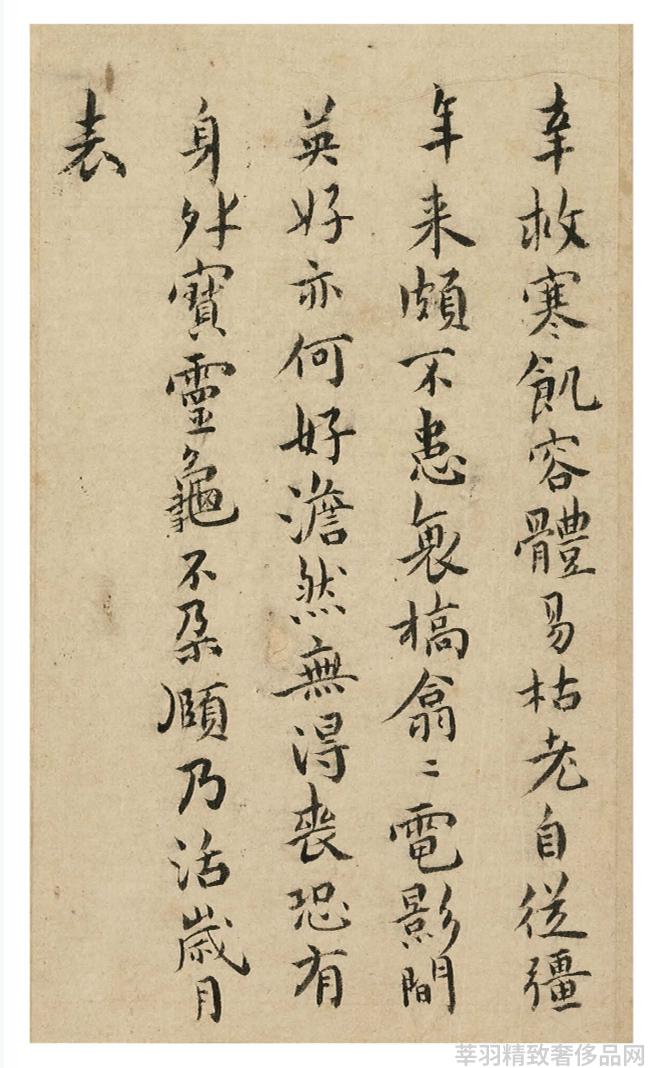 幸救寒飢容體易枯老自從彊
年来頗不患衰槁翕〻電影間
英好亦何好澹然無得喪恐有
身外寶靈龜不朶頤乃活歲月
表
莘羽精致奢侈品网